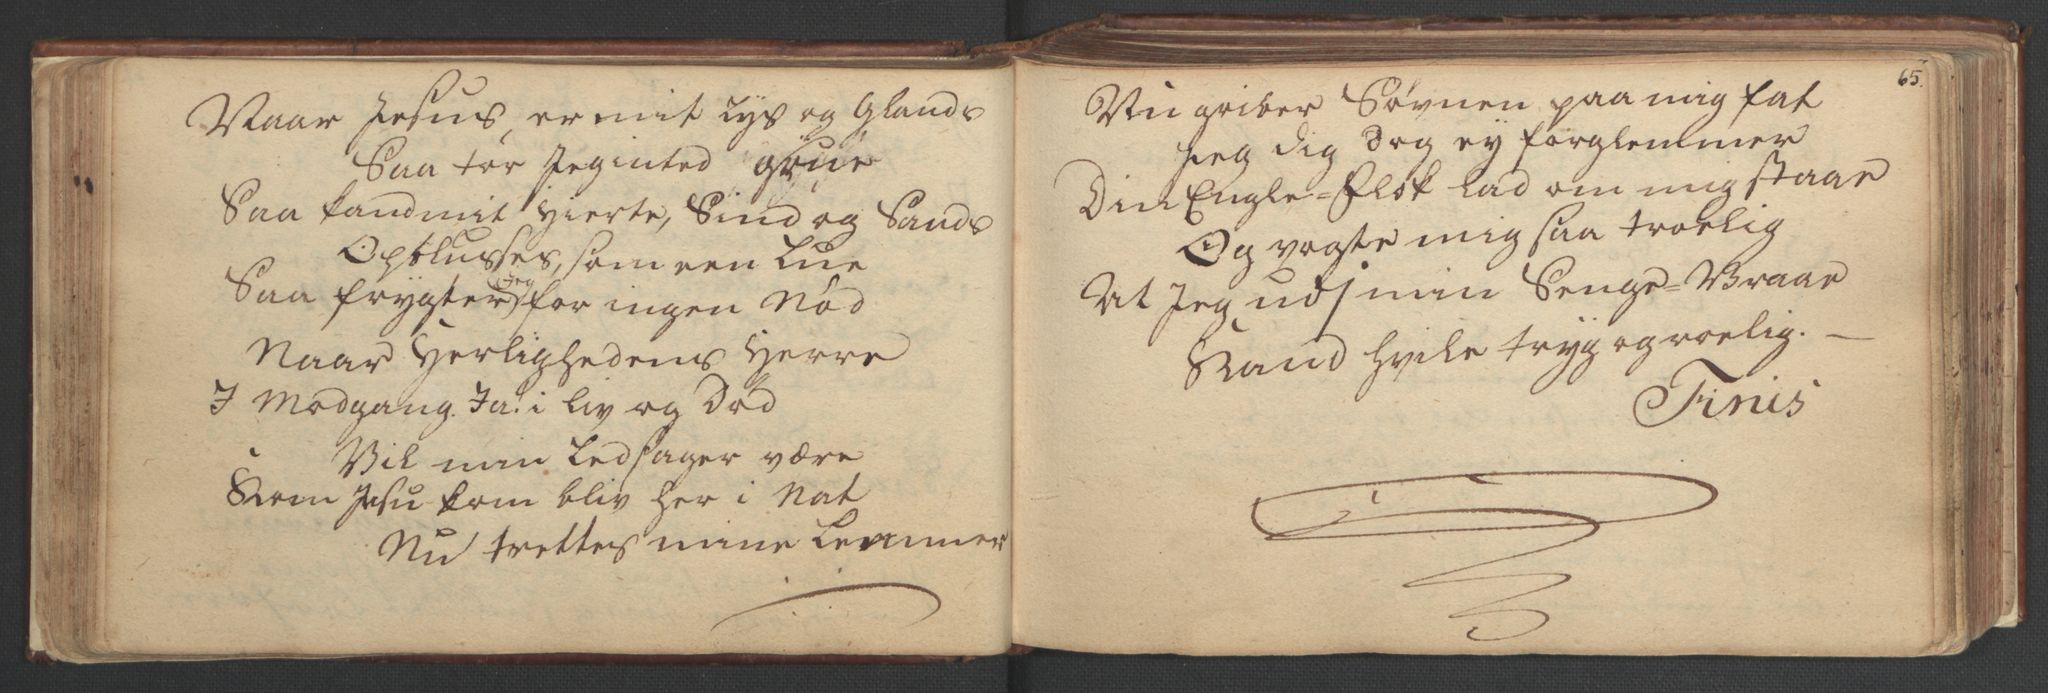 Naar Jesus, er mit Lys og Glands
Saa tør Jeg inted grue
Saa kand mit Hierte, Sind og Sands
Opblusses, som een Lue
Saa frygter Jeg for ingen Nød
Naar Herlighedens Herre
I Modgang. Ja! i liv og Død
Vil min Ledsager være
Kom Jesu kom bliv her i Nat
Nu trettes mine Lemmer
65.
Nu griber Søvnen paa mig fat
Jeg dig dog ey forglemmer
Din Engle=Flok lad om mig staae
Og vogte mig saa troelig
At Jeg udj min Senge=Vraae
Kand hvile tryg og roelig. —
Finis